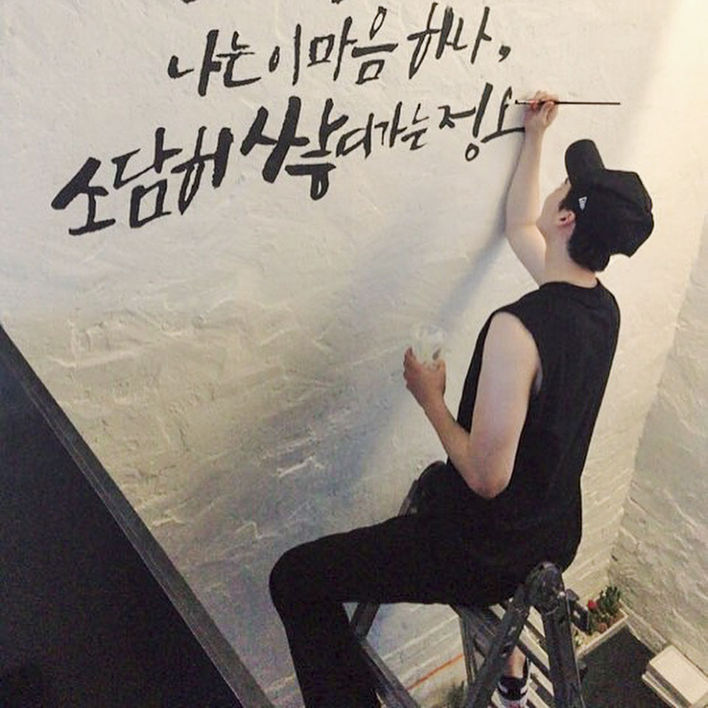 나는 이 마음 하나,
소담히 쌓여가는 정